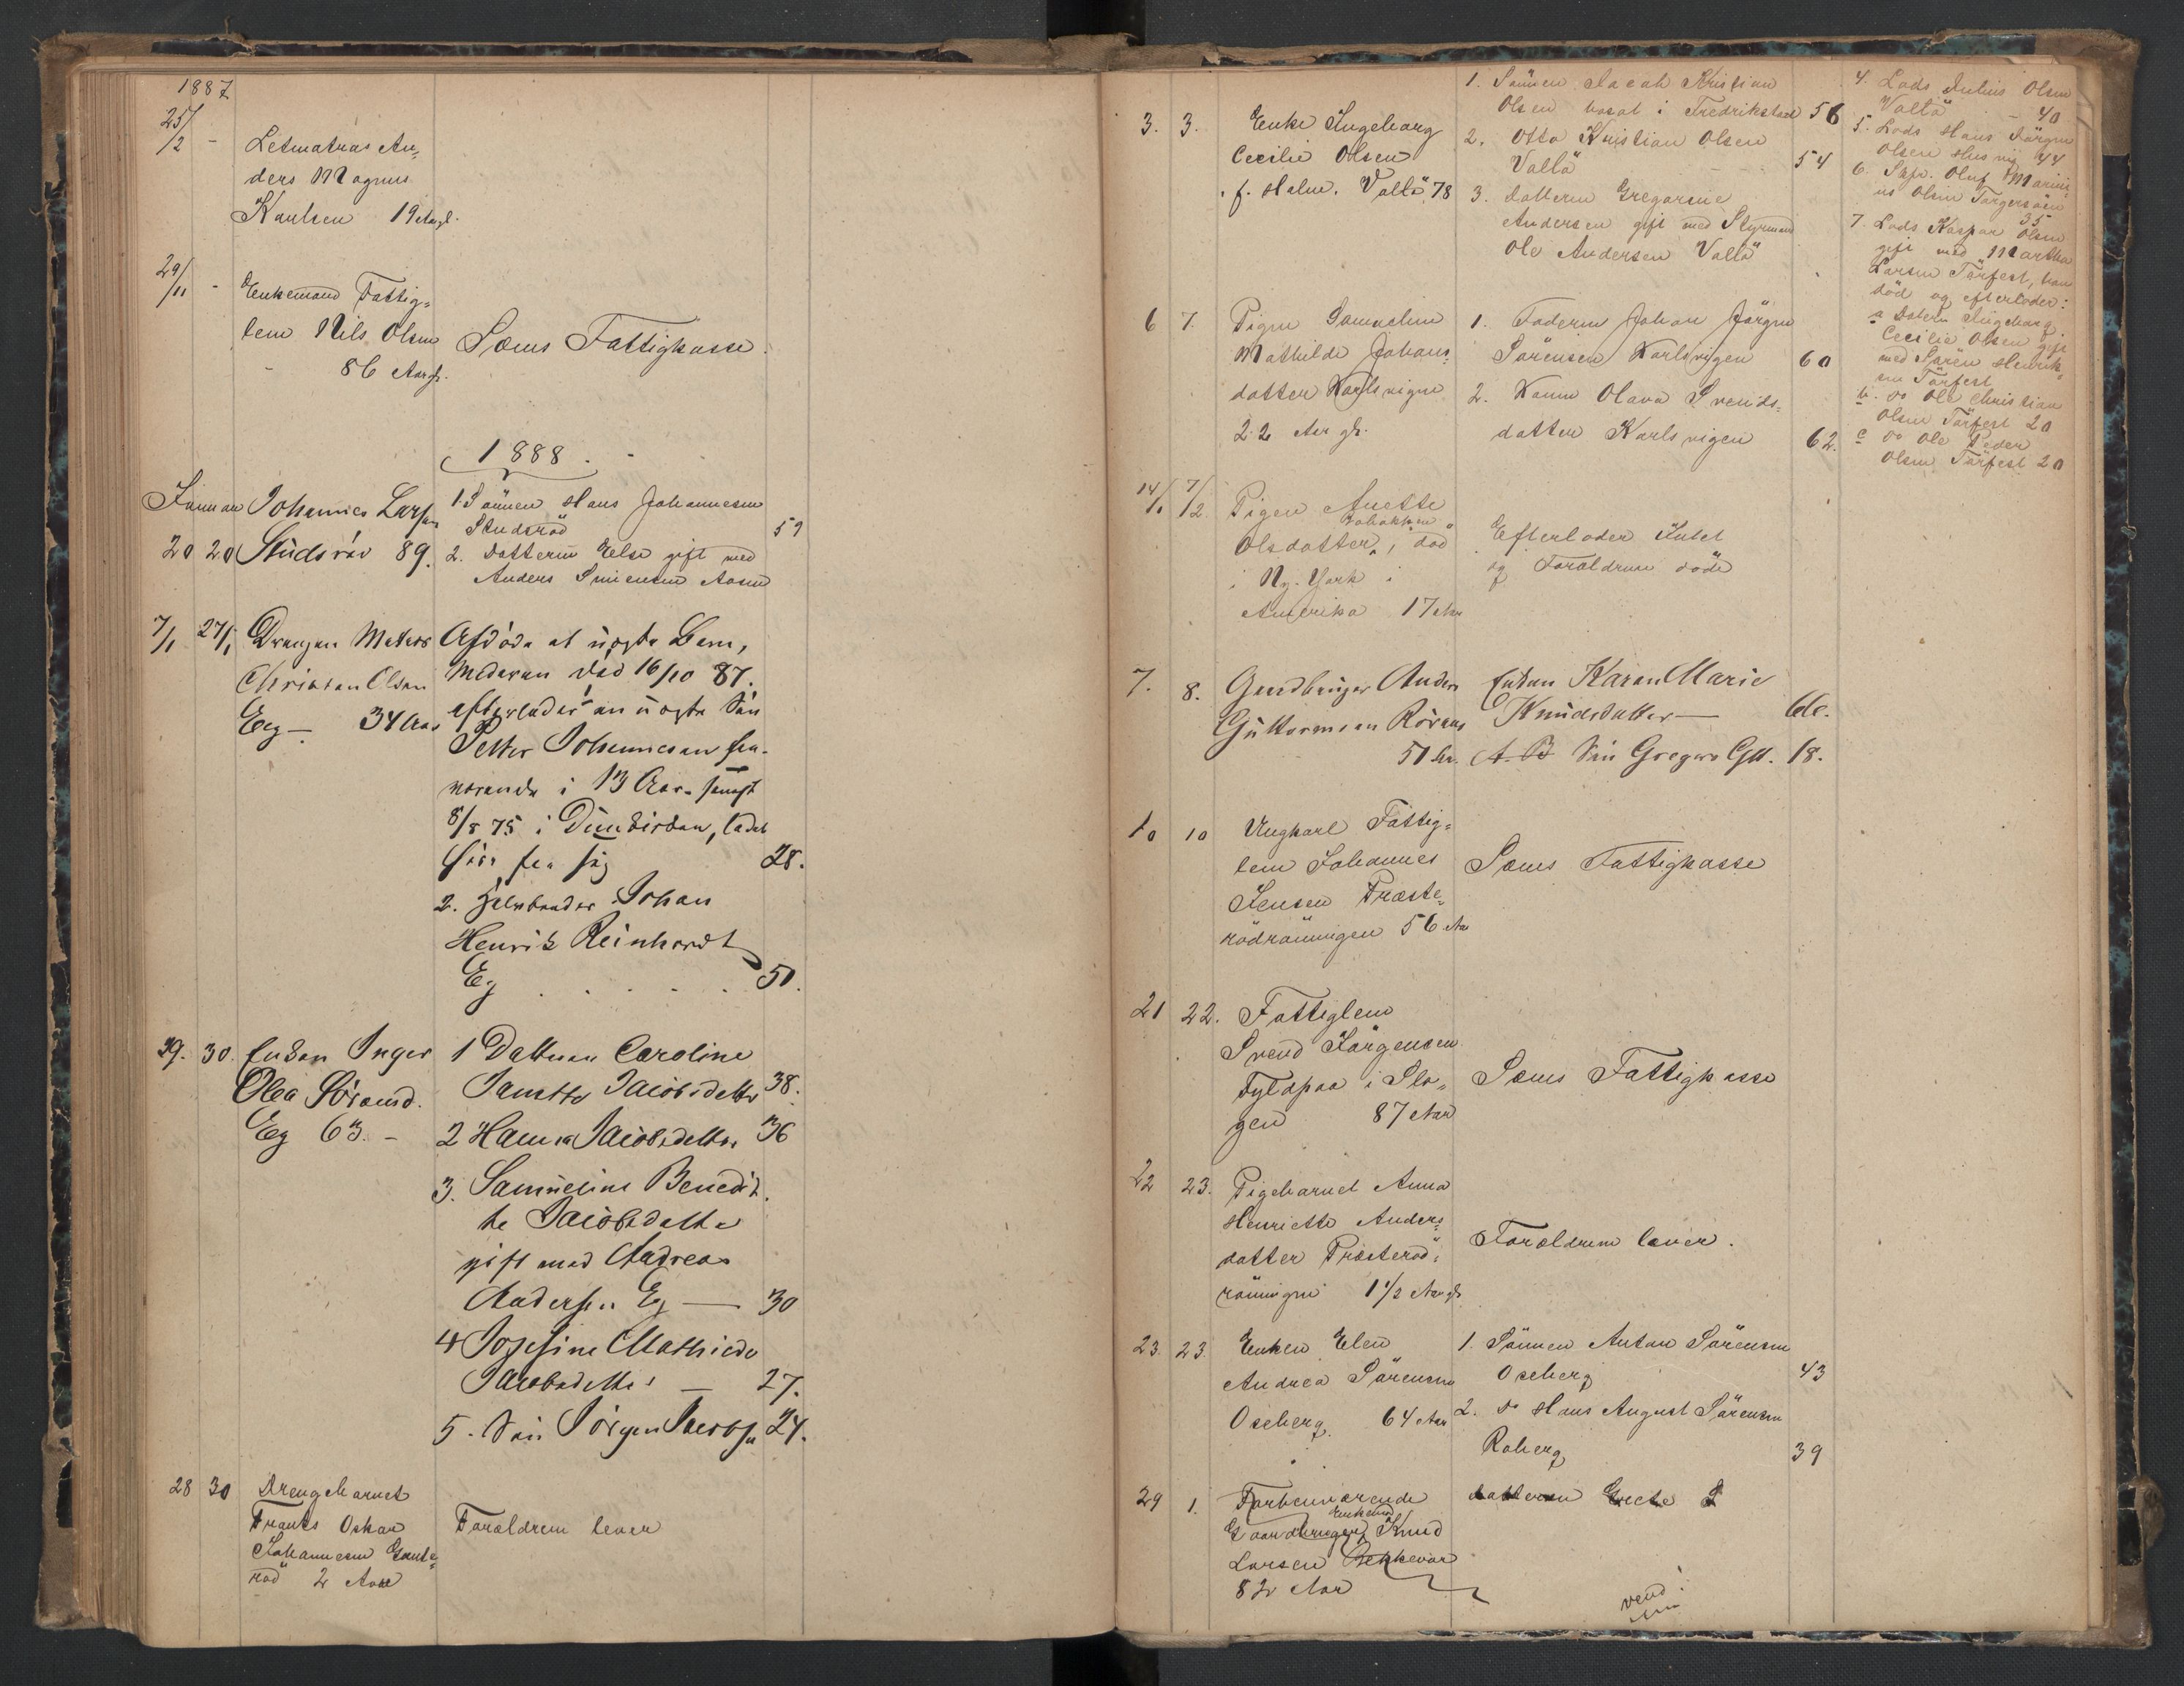 1887
25/2 - Letmatros An-
ders Magnus
Paulsen 19 Aar gl.
29/11 - Enkemand Fattig-
lem Nils Olsen Sems Fattigkasse.
86 Aar gl.
1888.
Januar Johannes Larsen 1. Sønnen Hans Johannesen
Studsrød 59
20 20 Studsrød 89. 2. Datteren Else gift med
Anders Simensen Aasen
7/1 27/1 Drengen Mathias Afdøde et uægte Barn,
Christian Olsen Moderen død 16/10 87.
Eeg - 34 Aar efterlader en uægte Søn
Petter Johannesen
i 13 Aar
8/8 75 i
sig 28.
2. Halvbroder Johan
Henrik Reinhardt
Eg . . . . . 50.
29. 30. Enken Inger 1 Datteren Caroline
Olea Sörensd. Janette Jacobsdatter 38.
Eeg 63. - 2 Hanna Jacobsdatter 36
3. Samueline Benedik-
te Jacobsdatter
gift med Andreas
Andersen Eg — 30
4 Josefine Mathilde
Jacobsdatter — 27.
5. Søn Jörgen Jacobsen 24.
28 30 Drengebarnet
Frants Oskar Forældrene lever
Johannesen Gaute-
rød 2 Aar
1. Sønnen Jacob Kristian
3. 3. Enke Ingeborg Olsen bosat i Fredrikstad 56
Cecilie Olsen 2. Otto Kristian Olsen
f. Holm. Vallø 78 Vallø 54
3. Datteren Gregorine
Andersen gift med Styrmand
Ole Andersen Vallø
4. Lods Julius Olsen
Vallø - 40
5. Lods Hans Jørgen
Olsen Husvig 44
6. Skpr. Oluf Marin-
us Olsen Torgersøen
35
7. Lods Kaspar Olsen
gift med Martha
Larsen Torfest, han
død og efterlader:
a Datter Ingeborg
Cecilie Olsen gift
med Søren Henrik-
sen Torfest
b. do Ole Christian
Olsen Torfest 20
c do Ole Peder
Olsen Torfest 20
6 7. Pigen Samueline 1. Faderen Johan Jørgen
Mathilde Johans- Sørensen Karlsvigen 60
datter Karlsvigen 2. Kone Olava Svends-
22 Aar gl. datter Karlsvigen 62.
14/1 7/2 Pigen Anette
Olsdatter, død Efterlader Intet
i Ny-York i og Forældrene døde
Amerika 17 Aar
7. 8. Gaardbruger Anders Enken Karen Marie
Guttormsen Röraas Knudsdatter — 66.
51 Aar. A. B Søn Gregers Gutt. 18.
10 10 Ungkarl Fattig-
lem Johannes Sems Fattigkasse
Jensen Præste-
rødrønningen 56 Aar
21 22. Fattiglem
Svend Jørgensen
Fyldpaa i Sla- Sems Fattigkasse
gen 87 Aar
22 23. Pigebarnet Anna
Henriette Anders-
datter Præsterød- Forældrene lever.
rønningen 1 1/2 Aar gl.
23. 23. Enken Elen 1. Sønnen Anton Sørensen
Andrea Sørensen Oseberg 43
Oseberg. 64 Aar 2. do Hans August Sørensen
Roberg 39
29 1. Forhenværende Datteren Grete S
Enkemd
Gaardbruger, Knud
Larsen Bekkevar
82 Aar
vend
om!